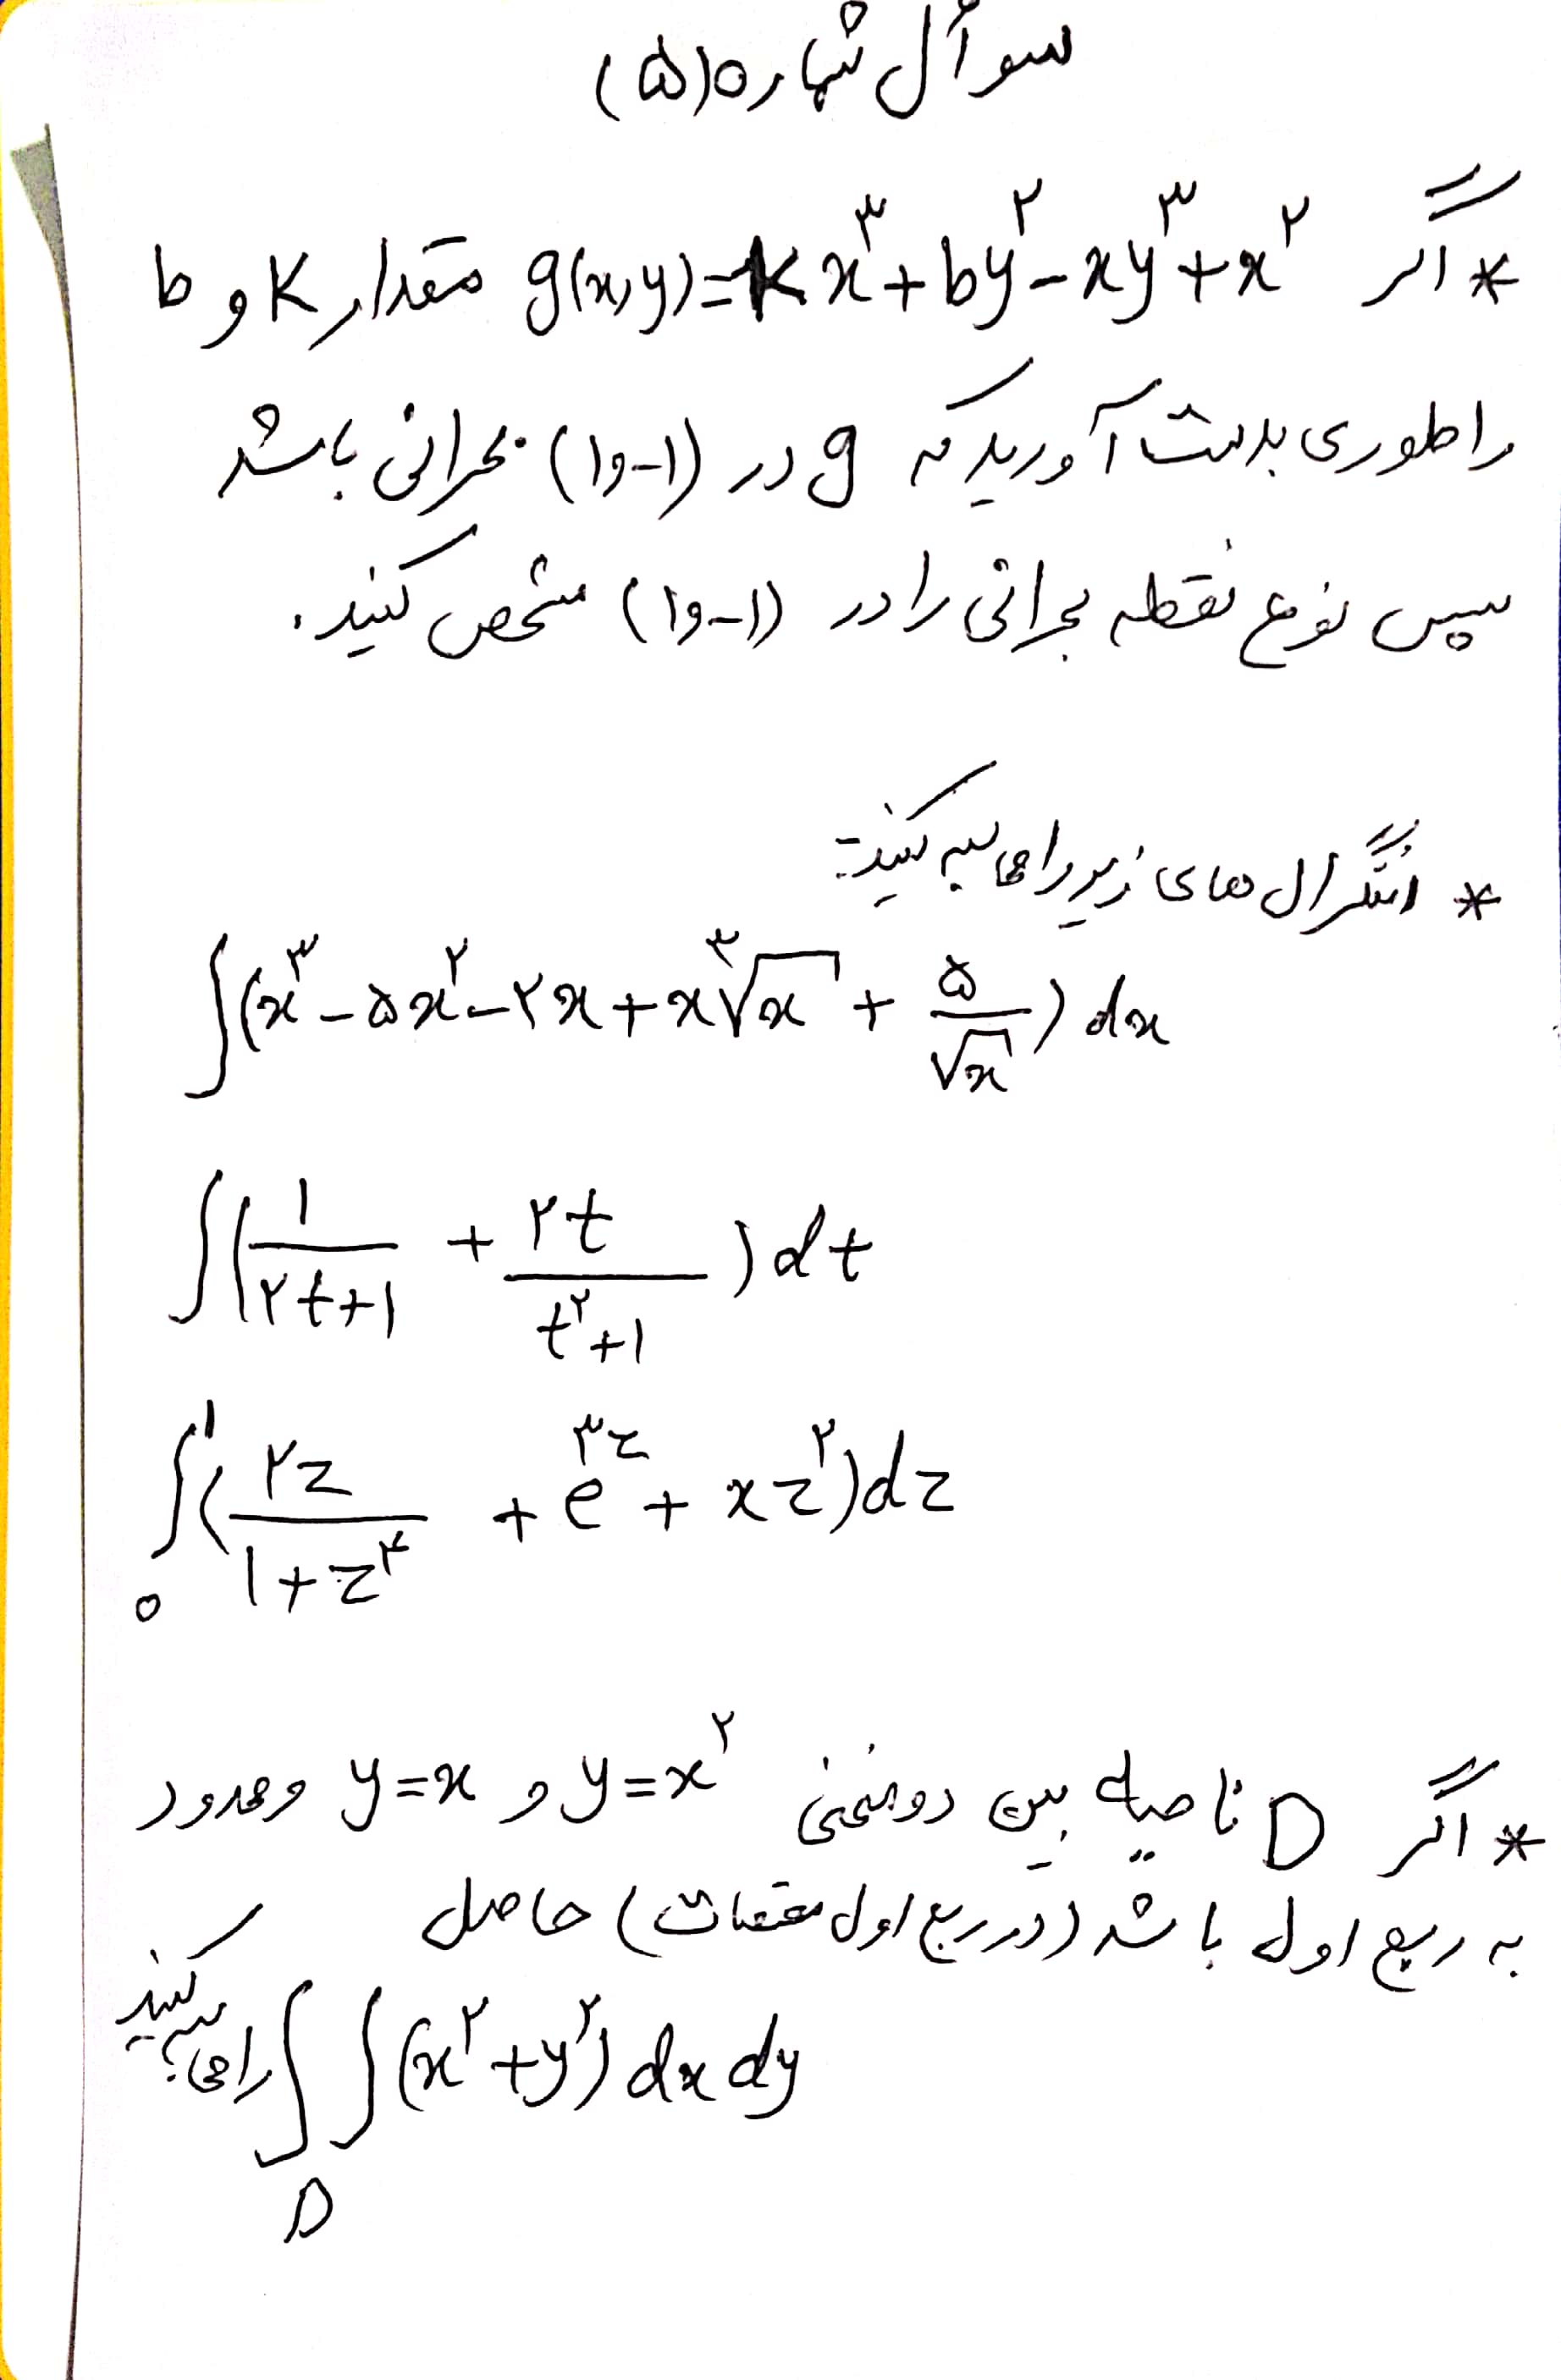 سوأل شماره (۵)
* اگر g(x,y)=kx^۳+by^۲-xy^۳+x^۲ مقدار k و b
را طوری بدست آورید که g در (۱و-۱) بحرانی باشد
سپس نوع نقطه بحرانی را در (۱و-۱) مشخص کنید.
* انتگرال های زیر را محاسبه کنید:
∫(x^۳-۵x^۲-۲x+x∛x+۵/√x)dx
∫(۱/(۲t+۱)+۲t/(t^۲+۱))dt
∫_۰^۱(۲z/(۱+z^۴)+e^{۳z}+xz^۲)dz
* اگر D ناحیه بین دو منحنی y=x^۲ و y=x و محدود
به ربع اول باشد (در ربع اول مختصات) حاصل
∫∫_D(x^۲+y^۲)dxdy را محاسبه کنید